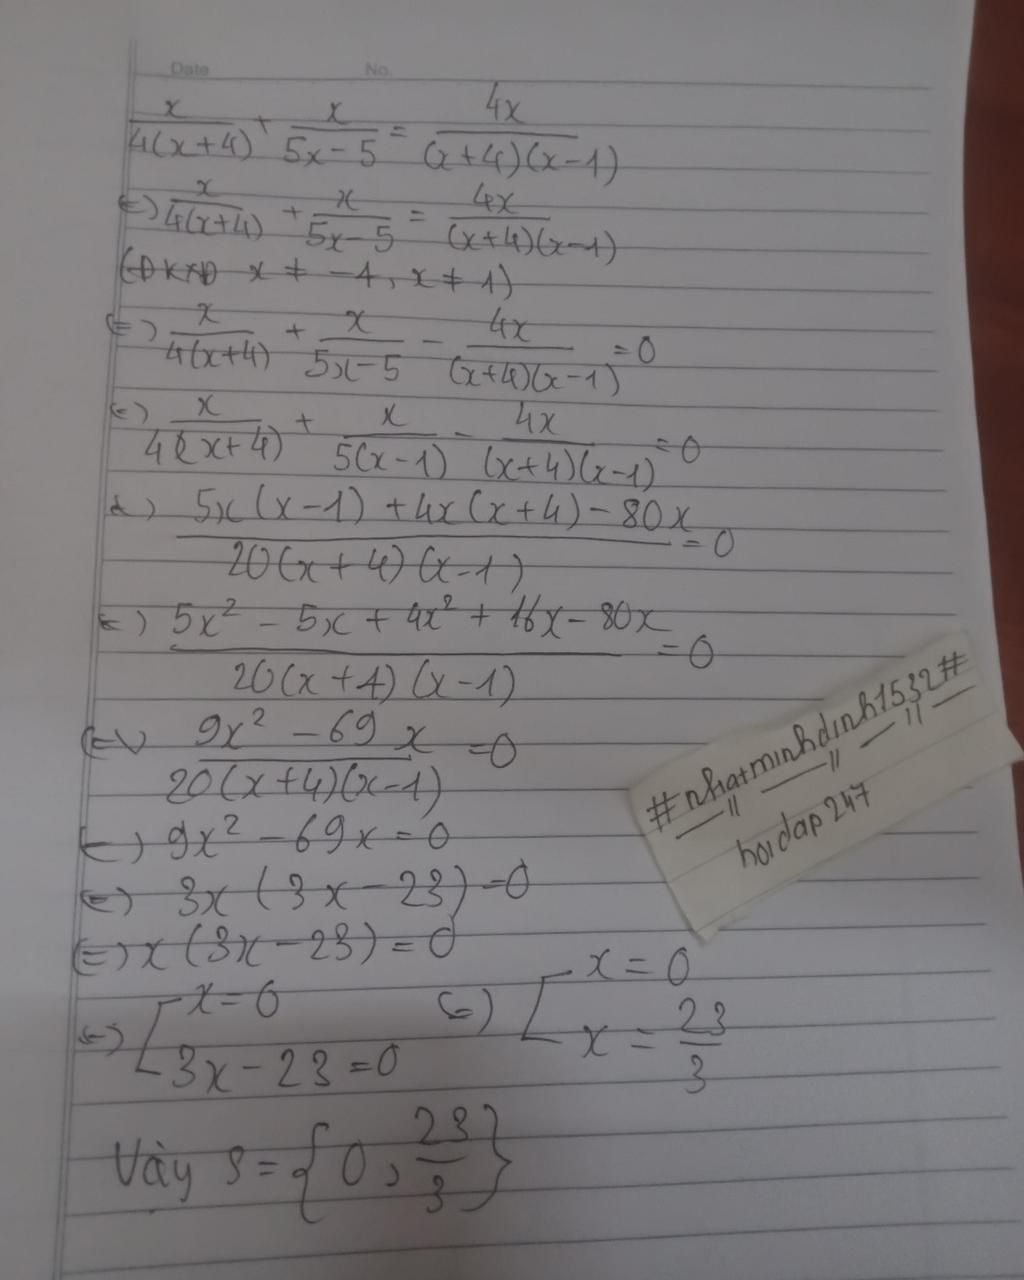 Date No
x/4(x+4) + x/5x-5 = 4x/(x+4)(x-1)
(=) x/4(x+4) + x/5x-5 = 4x/(x+4)(x-1)
(ĐKXĐ x ≠ -4, x ≠ 1)
(=) x/4(x+4) + x/5x-5 - 4x/(x+4)(x-1) = 0
(=) x/4(x+4) + x/5(x-1) - 4x/(x+4)(x-1) = 0
(=) 5x(x-1) + 4x(x+4) - 80x/20(x+4)(x-1) = 0
(=) 5x² - 5x + 4x² + 16x - 80x/20(x+4)(x-1) = 0
(=) 9x² - 69x/20(x+4)(x-1) = 0
(=) 9x² - 69x = 0
(=) 3x(3x-23) = 0
(=) x(3x-23) = 0
(=) [ x = 0 (=) [ x = 0
3x - 23 = 0 x = 23/3
Vậy S = {0, 23/3}
#nhatminhdinh1532#
hoidap247